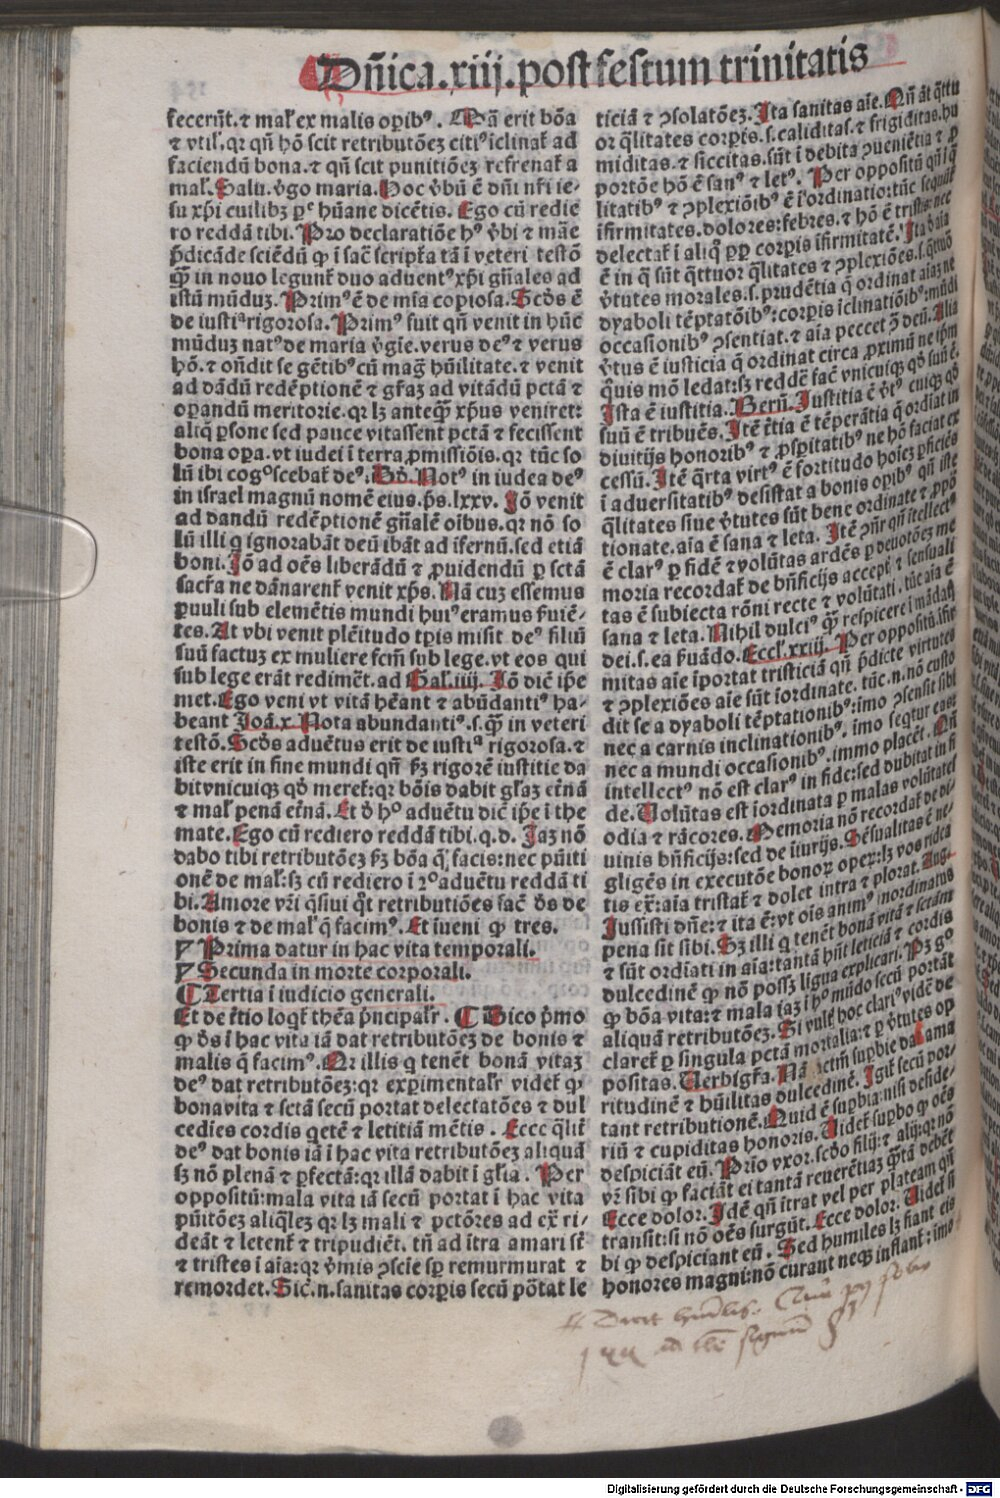 Dñica.xiij.post festum trinitatis
fecerũt.⁊ mal̃ ex malis oꝑib⁹. Nã erit bõa
⁊ vtil̃.qꝛ qñ hõ scit retributõeʒ citi⁹ ĩclinat̃ ad
faciendũ bona.⁊ qñ scit punitiõeʒ refrenat̃ a
mal̃.Salu.ṽgo maria.Hoc ṽbũ ẽ dñi nr̃i ie-
su xp̃i cuilibʒ ꝑᶜ hũane dicẽtis. Ego cũ redie
ro reddã tibi.Pro declaratiõe h⁹ ṽbi ⁊ mãe
p̃dicãde sciẽdũ ꝙ ĩ sac̃ scriptr̃a tã ĩ veteri testõ
q̃ʒ in nouo legunt̃ duo aduent⁹ xp̃i gñales ad
istũ mũduʒ.Prim⁹ ẽ de mĩa copiosa.Scđs ẽ
de iustiᵃ rigorosa.Prim⁹ fuit qñ venit in hũc
mũduʒ nat⁹ de maria ṽgĩe.verus de⁹ ⁊ verus
hõ.⁊ oñdit se gẽtib⁹ cũ mag̃ hũilitate.⁊ venit
ad dãdũ redẽptionẽ ⁊ gr̃aʒ ad vitãdũ pctã ⁊
oꝑandũ meritorie.qꝛ lʒ anteq̃ʒ xp̃us veniret:
aliq̃ ꝑsone sed pauce vitassent pctã ⁊ fecissent
bona oꝑa.vt iudei ĩ terra ꝓmissiõis.qꝛ tũc so
lũ ibi cog⁰scebat̃ de⁹.Vñ.Not⁹ in iudea de⁹
in israel magnũ nomẽ eius.p̃s.lxxv. Jõ venit
ad dandũ redẽptionẽ gñalẽ oĩbus.qꝛ nõ so
lũ illi q̃ ignorabãt deũ ibãt ad ĩfernũ.sed etiã
boni.Jõ ad oẽs liberãdũ ⁊ ꝓuidendũ ꝑ sctã
sacr̃a ne dãnarent̃ venit xp̃s.Nã cuʒ essemus
ꝑuuli sub elemẽtis mundi hui⁹ eramus ſuiẽ-
tes.At vbi venit plẽitudo tp̃is misit de⁹ filiũ
suũ factuʒ ex muliere fcm̃ sub lege.vt eos qui
sub lege erãt redimẽt.ad Gal̃.iiij. Jõ dic̃ ip̃e
met.Ego veni vt vitã hẽant ⁊ abũdanti⁹ ha-
beant Joã.x.Nota abundanti⁹.s.q̃ʒ in veteri
testõ.Scđs aduẽtus erit de iustiᵃ rigorosa.⁊
iste erit in fine mundi qñ ẜʒ rigorẽ iustitie da
bit vnicuiqʒ qđ meret̃:qꝛ bõis dabit gl̃aʒ et̃nã
⁊ mal̃ penã et̃nã.Et đ h⁰ aduẽtu dic̃ ip̃e ĩ the
mate.Ego cũ rediero reddã tibi.q.d. Jaʒ nõ
dabo tibi retributõeʒ ẜʒ bõa q̃ facis:nec pũiti
onẽ de mal̃:sʒ cũ rediero ĩ 2⁰ aduẽtu reddã ti
bi.Amore vr̃i q̃siui q̃t retributiões fac̃ đs de
bonis ⁊ de mal̃ q̃ facim⁹.Et ĩueni ꝙ tres.
Prima datur in hac vita temporali.
Secunda in morte corporali.
Tertia ĩ iudicio generali.
Et de t̃tio loqt̃ thẽa p̃ncipalr̃. Dico p̃mo
ꝙ đs ĩ hac vita iã dat retributõeʒ de bonis ⁊
malis q̃ facim⁹.Qꝛ illis q̃ tenẽt bonã vitaʒ
de⁹ dat retributõeʒ:qꝛ exꝑimentalr̃ videt̃ ꝙ
bona vita ⁊ sctã secũ portat delectatões ⁊ dul
cedĩes cordis q̃etẽ ⁊ letitiã mẽtis. Ecce q̃lit̃
de⁹ dat bonis iã ĩ hac vita retributõeʒ aliquã
sʒ nõ plenã ⁊ ꝑfectã:qꝛ illã dabit ĩ gl̃ia. Per
oppositũ:mala vita iã secũ portat ĩ hac vita
pũitõeʒ aliq̃leʒ qꝛ lʒ mali ⁊ pctõres ad ex̃ ri-
deãt ⁊ letent̃ ⁊ tripudiẽt. tñ ad ĩtra amari st̃
⁊ tristes ĩ aĩa:qꝛ ṽmis ↄscĩe sꝑ remurmurat ⁊
remordet.Sic̃.n.sanitas corꝑis secũ põtat le
ticiã ⁊ ↄsolatõeʒ.Ita sanitas aĩe.Qñ ãt q̃ttu
or q̃litates corꝑis.s.caliditas.⁊ frigiditas.hu
miditas.⁊ siccitas.sũt ĩ debita ↄueniẽtia ⁊ ꝓ
portõe hõ ẽ san⁹ ⁊ let⁹. Per oppositũ qñ ĩ q̃
litatib⁹ ⁊ ↄplexiõib⁹ ẽ ĩordinatio:tũc sequũt̃
ĩfirmitates.dolores:febres.⁊ hõ ẽ tristis:nec
delectat̃ ĩ aliq̃ ꝓp corꝑis ĩfirmitatẽ.Ita đ aĩa
ẽ in q̃ sũt q̃ttuor q̃litates ⁊ ↄplexiões.s.q̃ttuo
ṽtutes morales.s.prudẽtia q̃ ordinat aĩaʒ ne
dyaboli tẽptatõib⁹:corꝑis ĩclinatiõib⁹:mũdi
occasionib⁹ ↄsentiat.⁊ aĩa peccet ↄ̃ deũ.Alia
ṽtus ẽ iusticia q̃ ordinat circa ꝓximũ ne ip̃m
q̃uis mõ ledat:sʒ reddẽ fac̃ vnicuiqʒ qđ suũ ẽ.
Ista ẽ iustitia. Berñ.Justitia ẽ ṽt⁹ cuiqʒ qđ
suũ ẽ tribuẽs.Jtẽ t̃tia ẽ tẽperãtia q̃ ordĩat in
diuitijs honorib⁹ ⁊ ꝓsꝑitatib⁹ ne hõ faciat ex
cessũ.Jtẽ q̃rta virt⁹ ẽ fortitudo hoĩeʒ ꝑficiẽs
ĩ aduersitatib⁹ desistat a bonis oꝑib⁹ qñ iste
q̃litates siue ṽtutes sũt bene ordinate ⁊ ꝓpõ
tionate.aĩa ẽ sana ⁊ leta. Jtẽ ↄñr̃ qñ ĩtellect⁹
ẽ clar⁹ ꝑ fidẽ ⁊ volũtas ardẽs ꝑ deuotõeʒ me
moria recordat̃ de bñficijs accept̃ ⁊ sensuali
tas ẽ subiecta rõni recte ⁊ volũtati.tũc aĩa ẽ
sana ⁊ leta.Nihil dulci⁹ q̃ʒ respicere ĩ mãdat̃
dei.s.ea ſuãdo.Eccl̃.xxiij. Per oppositũ.ĩfir
mitas aĩe ĩportat tristiciã qñ p̃dicte virtutes
⁊ ↄplexiões aĩe sũt ĩordinate. tũc.n.nõ custo
dit se a dyaboli tẽptationib⁹:ĩmo ↄsensit sibi
nec a carnis inclinationib⁹. imo seq̃tur eas
nec a mundi occasionib⁹.immo placẽt. Qñ
intellect⁹ nõ est clar⁹ in fide:sed dubitat in fi
de.Volũtas est ĩordinata ꝑ malas volũtates
odia ⁊ rãcores. Memoria nõ recordat̃ de di-
uinis bñficijs:sed de ĩiurijs.Sẽsualitas ẽ ne-
gligẽs in executõe bonoꝝ oꝑeꝝ:lʒ vos ridea
tis ex̃:aĩa tristat̃ ⁊ dolet intra ⁊ plorat. Aug.
Jussisti dñe:⁊ ita ẽ:vt oĩs anim⁹ inordinatus
pena sit sibi.Sʒ illi q̃ tenẽt bonã vitã ⁊ sctãm
⁊ sũt ordĩati in aĩa:tantã hñt leticiã ⁊ cordis
dulcedinẽ ꝙ nõ possʒ ligua explicari.Pʒ g⁰
ꝙ bõa vita:⁊ mala iaʒ ĩ h⁰ mũdo secũ portãt
aliquã retributõeʒ.Si vult̃ hoc clari⁹ vidẽ de
claret̃ ꝑ singula pctã mortalia:⁊ ꝑ ṽtutes op
positas.Verbigr̃a.Nã pctm̃ suꝑbie dat ama
ritudinẽ ⁊ hũilitas dulcedinẽ. Jgit̃ secũ por-
tant retributionẽ.Quid ẽ suꝑbia:nisi deside-
riũ ⁊ cupiditas honoris. Videt̃ suꝑbo ꝙ oẽs
despiciãt eũ. Prĩo vxor.scđo filij:⁊ alij:qꝛ nõ
vr̃ sibi ꝙ faciãt ei tantã reuerẽtiaʒ q̃ʒtã debẽt
Ecce dolor.Jdẽ qñ ĩtrat vel per plateam qñ
transit:si nõ oẽs surgũt.Ecce dolor. Videt̃ si
bi ꝙ despiciant eũ. Sed humiles lʒ fiant eis
honores magni:nõ curant neqʒ inflant̃:imo
Digitalisierung gefördert durch die Deutsche Forschungsgemeinschaft - DFG